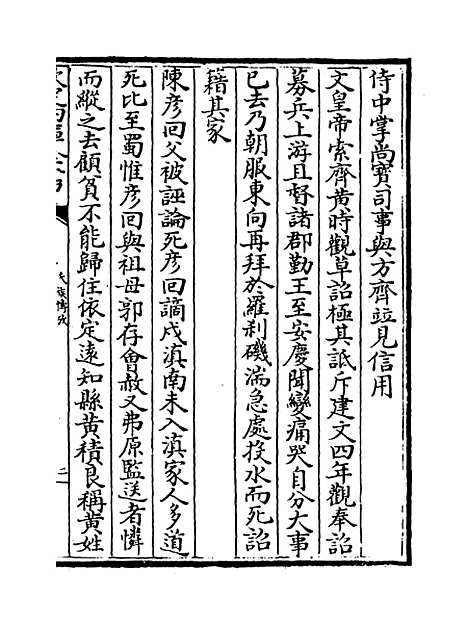 侍中掌尚寶司事與方齊竝見信用
文皇帝索齊黃時觀草詔極其詆斥建文四年觀奉詔
募兵上游且督諸郡勤王至安慶聞變痛哭自分大事
已去乃朝服東向再拜於羅刹磯湍急處投水而死詔
藉其家
陳彥回父被誣論死彥回謫戍滇南未入滇家人多道
死比至蜀惟彥回與祖母郭存會赦又弗原監送者憐
而縱之去顧貧不能歸往依定遠知縣黃積良稱黃姓